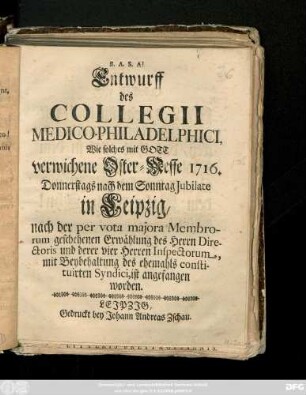 E. A. S. A!
Entwurff
des
COLLEGII
MEDICO-PHILADELPHICI,
Wie solches mit GOTT
verwichene Oster-Messe 1716.
Donnerstags nach dem Sonntag Jubilate
in Leipzig,
nach der per vota majora Membro-
rum geschehenen Erwählung des Herrn Dire-
ctoris und derer vier Herren Inspectorum,
mit Beybehaltung des ehemahls consti-
tuirten Syndici, ist angefangen
worden.
LEIPZIG,
Gedruckt bey Johann Andreas Zschau.